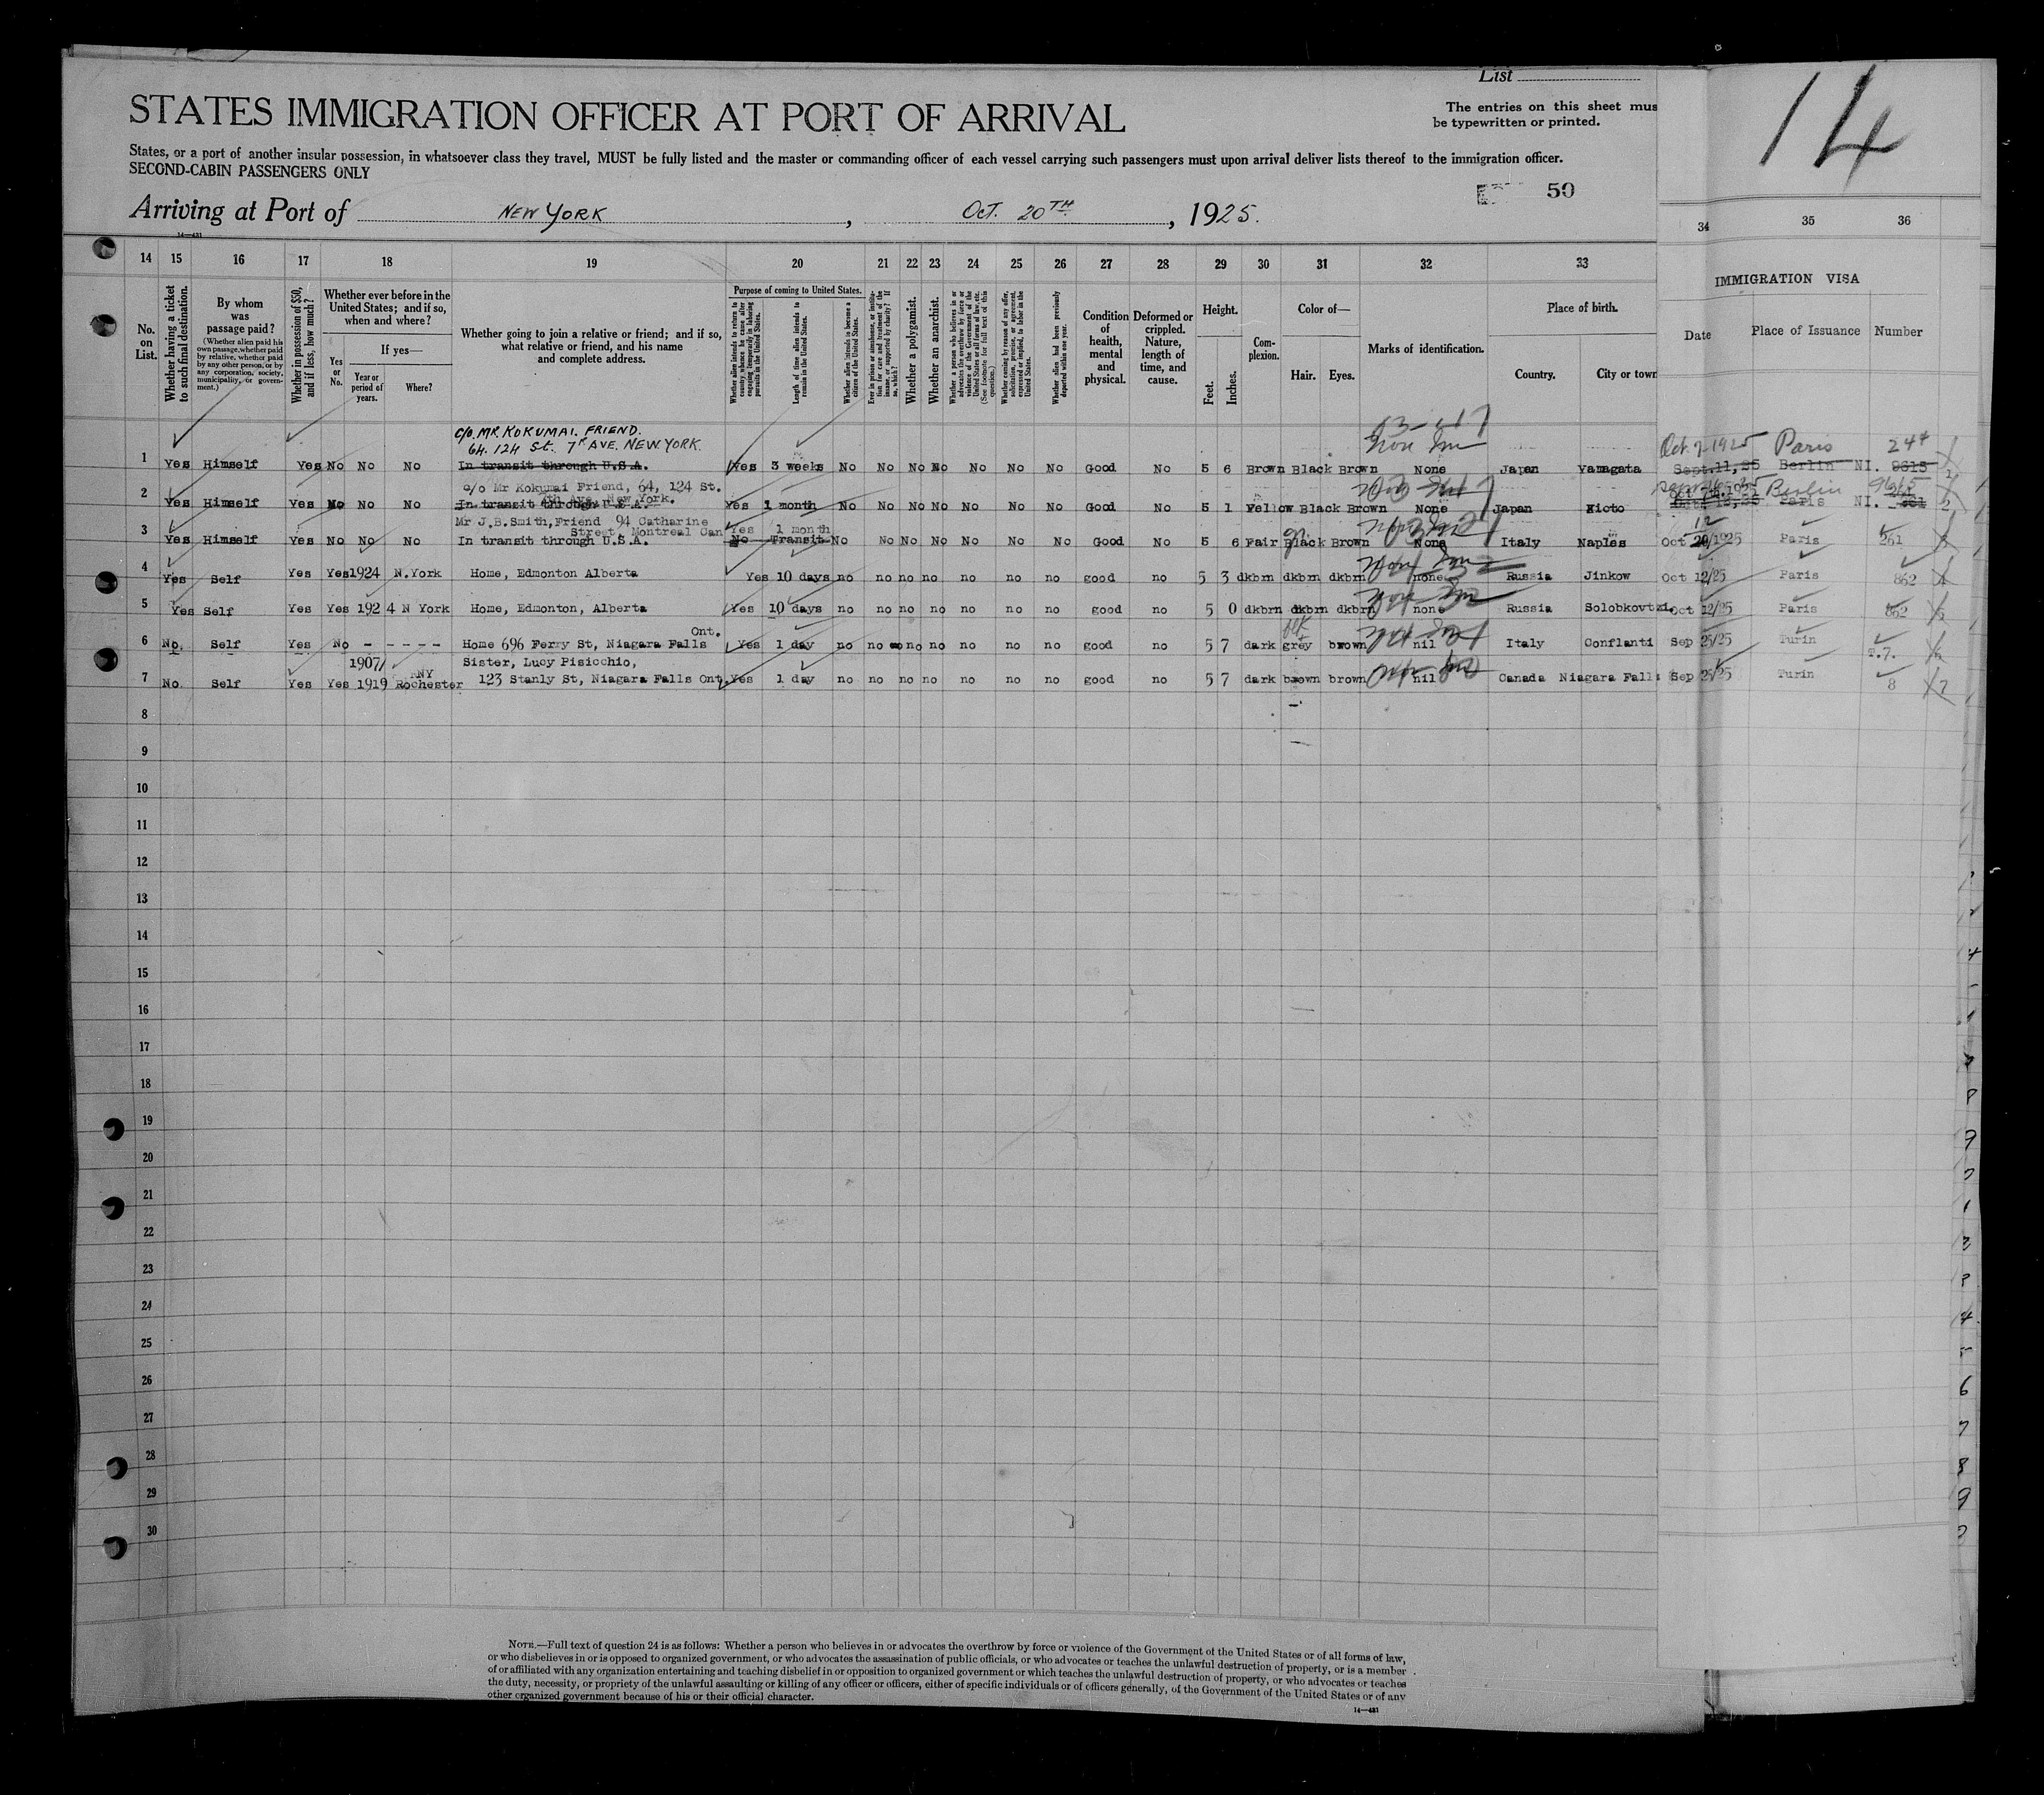 List
STATES IMMIGRATION OFFICER AT PORT OF ARRIVAL
The entries on this sheet mus
be typewritten or printed.
14
States, or a port of another insular possession, in whatsoever class they travel, MUST be fully listed and the master or commanding officer of each vessel carrying such passengers must upon arrival deliver lists thereof to the immigration officer.
SECOND-CABIN PASSENGERS ONLY
50
Arriving at Port of NEW YORK, OCT. 20TH, 1925.
14—431
14 15 16 17 18 19 20 21 22 23 24 25 26 27 28 29 30 31 32 33 34 35 36
No. on List.
Whether having a ticket to such final destination.
By whom was passage paid?
(Whether alien paid his own passage, whether paid by relative, whether paid by any other person, or by any corporation, society, municipality, or government.)
Whether in possession of $50, and if less, how much?
Whether ever before in the United States; and if so, when and where?
Yes or No.
If yes—
Year or period of years.
Where?
Whether going to join a relative or friend; and if so, what relative or friend, and his name and complete address.
Purpose of coming to United States.
Whether alien intends to return to country whence he came after engaging temporarily in laboring pursuits in the United States.
Length of time alien intends to remain in the United States.
Whether alien intends to become a citizen of the United States.
Ever in prison or almshouse, or institution for care and treatment of the insane, or supported by charity? If so, which?
Whether a polygamist.
Whether an anarchist.
Whether a person who believes in or advocates the overthrow by force or violence of the Government of the United States or all forms of law, etc. (See footnote for full text of this question.)
Whether coming by reason of any offer, solicitation, promise, or agreement, expressed or implied, to labor in the United States.
Whether alien had been previously deported within one year.
Condition of health, mental and physical.
Deformed or crippled. Nature, length of time, and cause.
Height.
Feet.
Inches.
Complexion.
Color of—
Hair. Eyes.
Marks of identification.
Place of birth.
Country. City or town
IMMIGRATION VISA
Date Place of Issuance Number
C/O. MR. KOKUMAI. FRIEND.
64. 124 St. 7th AVE. NEW YORK.
Oct 7-1925 Paris 244
1 Yes Himself Yes No No No In transit through U.S.A. Yes 3 weeks No No No No No No No Good No 5 6 Brown Black Brown None Japan Yamagata Sept.11,25 Berlin NI. 9615
c/o Mr Kokumai Friend, 64, 124 St.
7th Ave, New York.
Berlin 9615
2 Yes Himself Yes No No No In transit through U.S.A. Yes 1 month No No No No No No No Good No 5 1 Yellow Black Brown None Japan Kioto Paris NI.
Mr J.B.Smith, Friend 94 Catharine
Street, Montreal Can Yes 1 month
3 Yes Himself Yes No No No In transit through U.S.A. No Transit No No No No No No No Good No 5 6 Fair Black Brown None Italy Naples Oct 20/1925 Paris 261
4 Yes Self Yes Yes 1924 N.York Home, Edmonton Alberta Yes 10 days no no no no no no no good no 5 3 dkbrn dkbrn dkbrn none Russia Jinkow Oct 12/25 Paris 862
5 Yes Self Yes Yes 1924 N York Home, Edmonton, Alberta Yes 10 days no no no no no no no good no 5 0 dkbrn dkbrn dkbrn none Russia Solobkovtzi Oct 12/25 Paris 862
Ont.
6 No. Self Yes No - - - - - Home 696 Ferry St, Niagara Falls Yes 1 day no no no no no no no good no 5 7 dark grey brown nil Italy Conflanti Sep 25/25 Turin T.7.
1907/ NY Sister, Lucy Pisicchio,
7 No. Self Yes Yes 1919 Rochester 123 Stanly St, Niagara Falls Ont. Yes 1 day no no no no no no no good no 5 7 dark brown brown nil Canada Niagara Falls Sep 25/25 Turin 8
8
9
10
11
12
13
14
15
16
17
18
19
20
21
22
23
24
25
26
27
28
29
30
NOTE.—Full text of question 24 is as follows: Whether a person who believes in or advocates the overthrow by force or violence of the Government of the United States or of all forms of law,
or who disbelieves in or is opposed to organized government, or who advocates the assassination of public officials, or who advocates or teaches the unlawful destruction of property, or is a member
of or affiliated with any organization entertaining and teaching disbelief in or opposition to organized government or which teaches the unlawful destruction of property, or who advocates or teaches
the duty, necessity, or propriety of the unlawful assaulting or killing of any officer or officers, either of specific individuals or of officers generally, of the Government of the United States or of any
other organized government because of his or their official character.
14—431